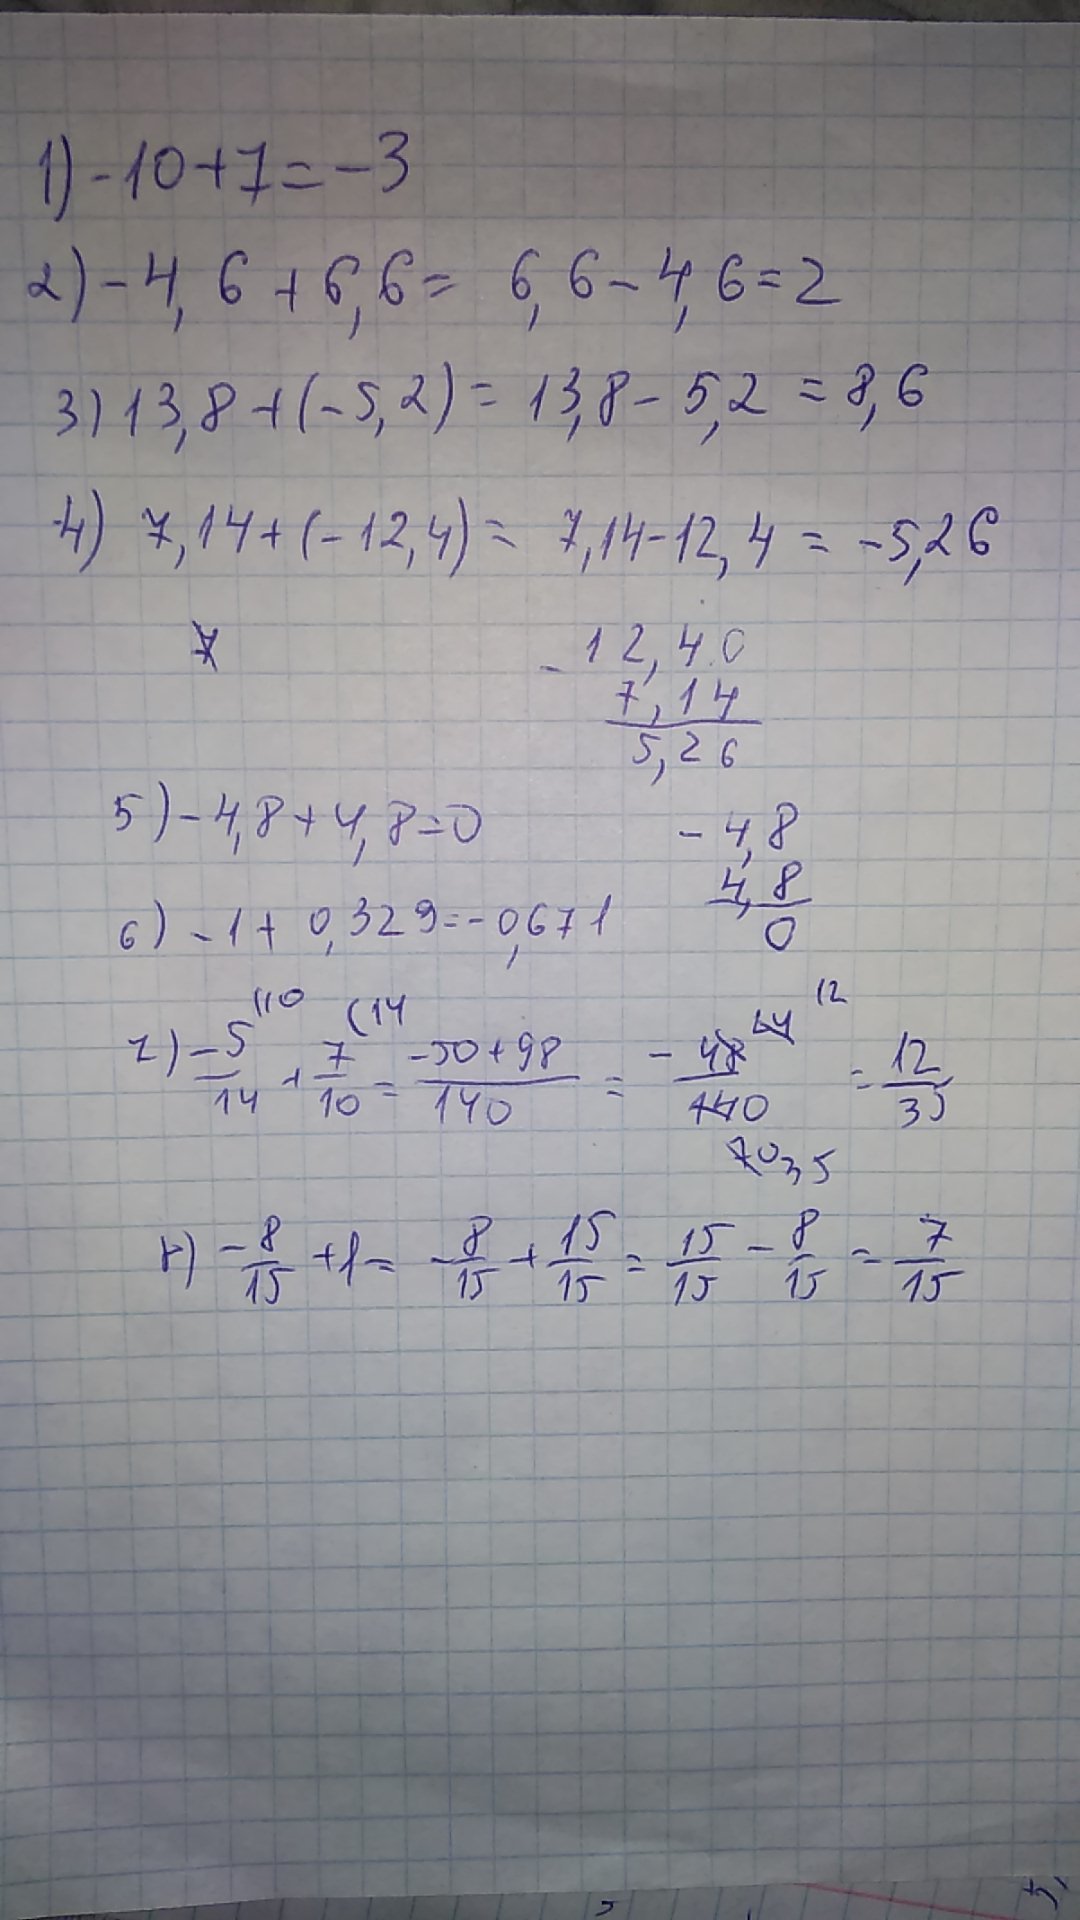 1) -10+7=-3
2) -4,6+6,6= 6,6-4,6=2
3) 13,8+(-5,2)= 13,8-5,2=8,6
4) 7,14+(-12,4)= 7,14-12,4=-5,26
-12,40
7,14
5,26
5) -4,8+4,8=0
-4,8
4,8
0
6) -1+0,329=-0,671
7) -5/14 (10 + 7/10 (14 = -50+98/140 = -48/140 24 12 70 35 = 12/35
8) -8/15+1= -8/15+15/15=15/15-8/15=7/15